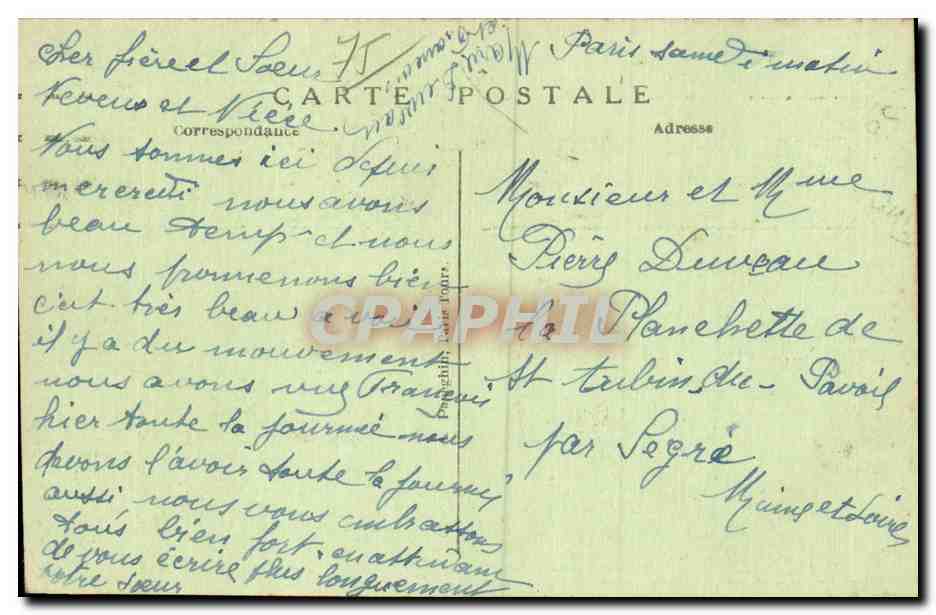 Paris samedi matin
75
CARTE POSTALE
Correspondance
Adresse
Cher frère et Soeur
Neveux et Nièce.
Nous sommes ici depuis
mercredi nous avons
beau temp et nous
nous promenons bien
c'est très beau a voir
il y a du mouvement
nous avons vue François
hier toute la journée nous
devons l'avoir toute la journée
aussi nous vous embrassons
tous bien fort. en attendant
de vous écrire plus longuement
votre soeur
Marie Duveau
Monsieur et Mme
Pierre Duveau
la Planchette de
St Aubin du Pavoil
par Segré
Maine et Loire
CARPHIL